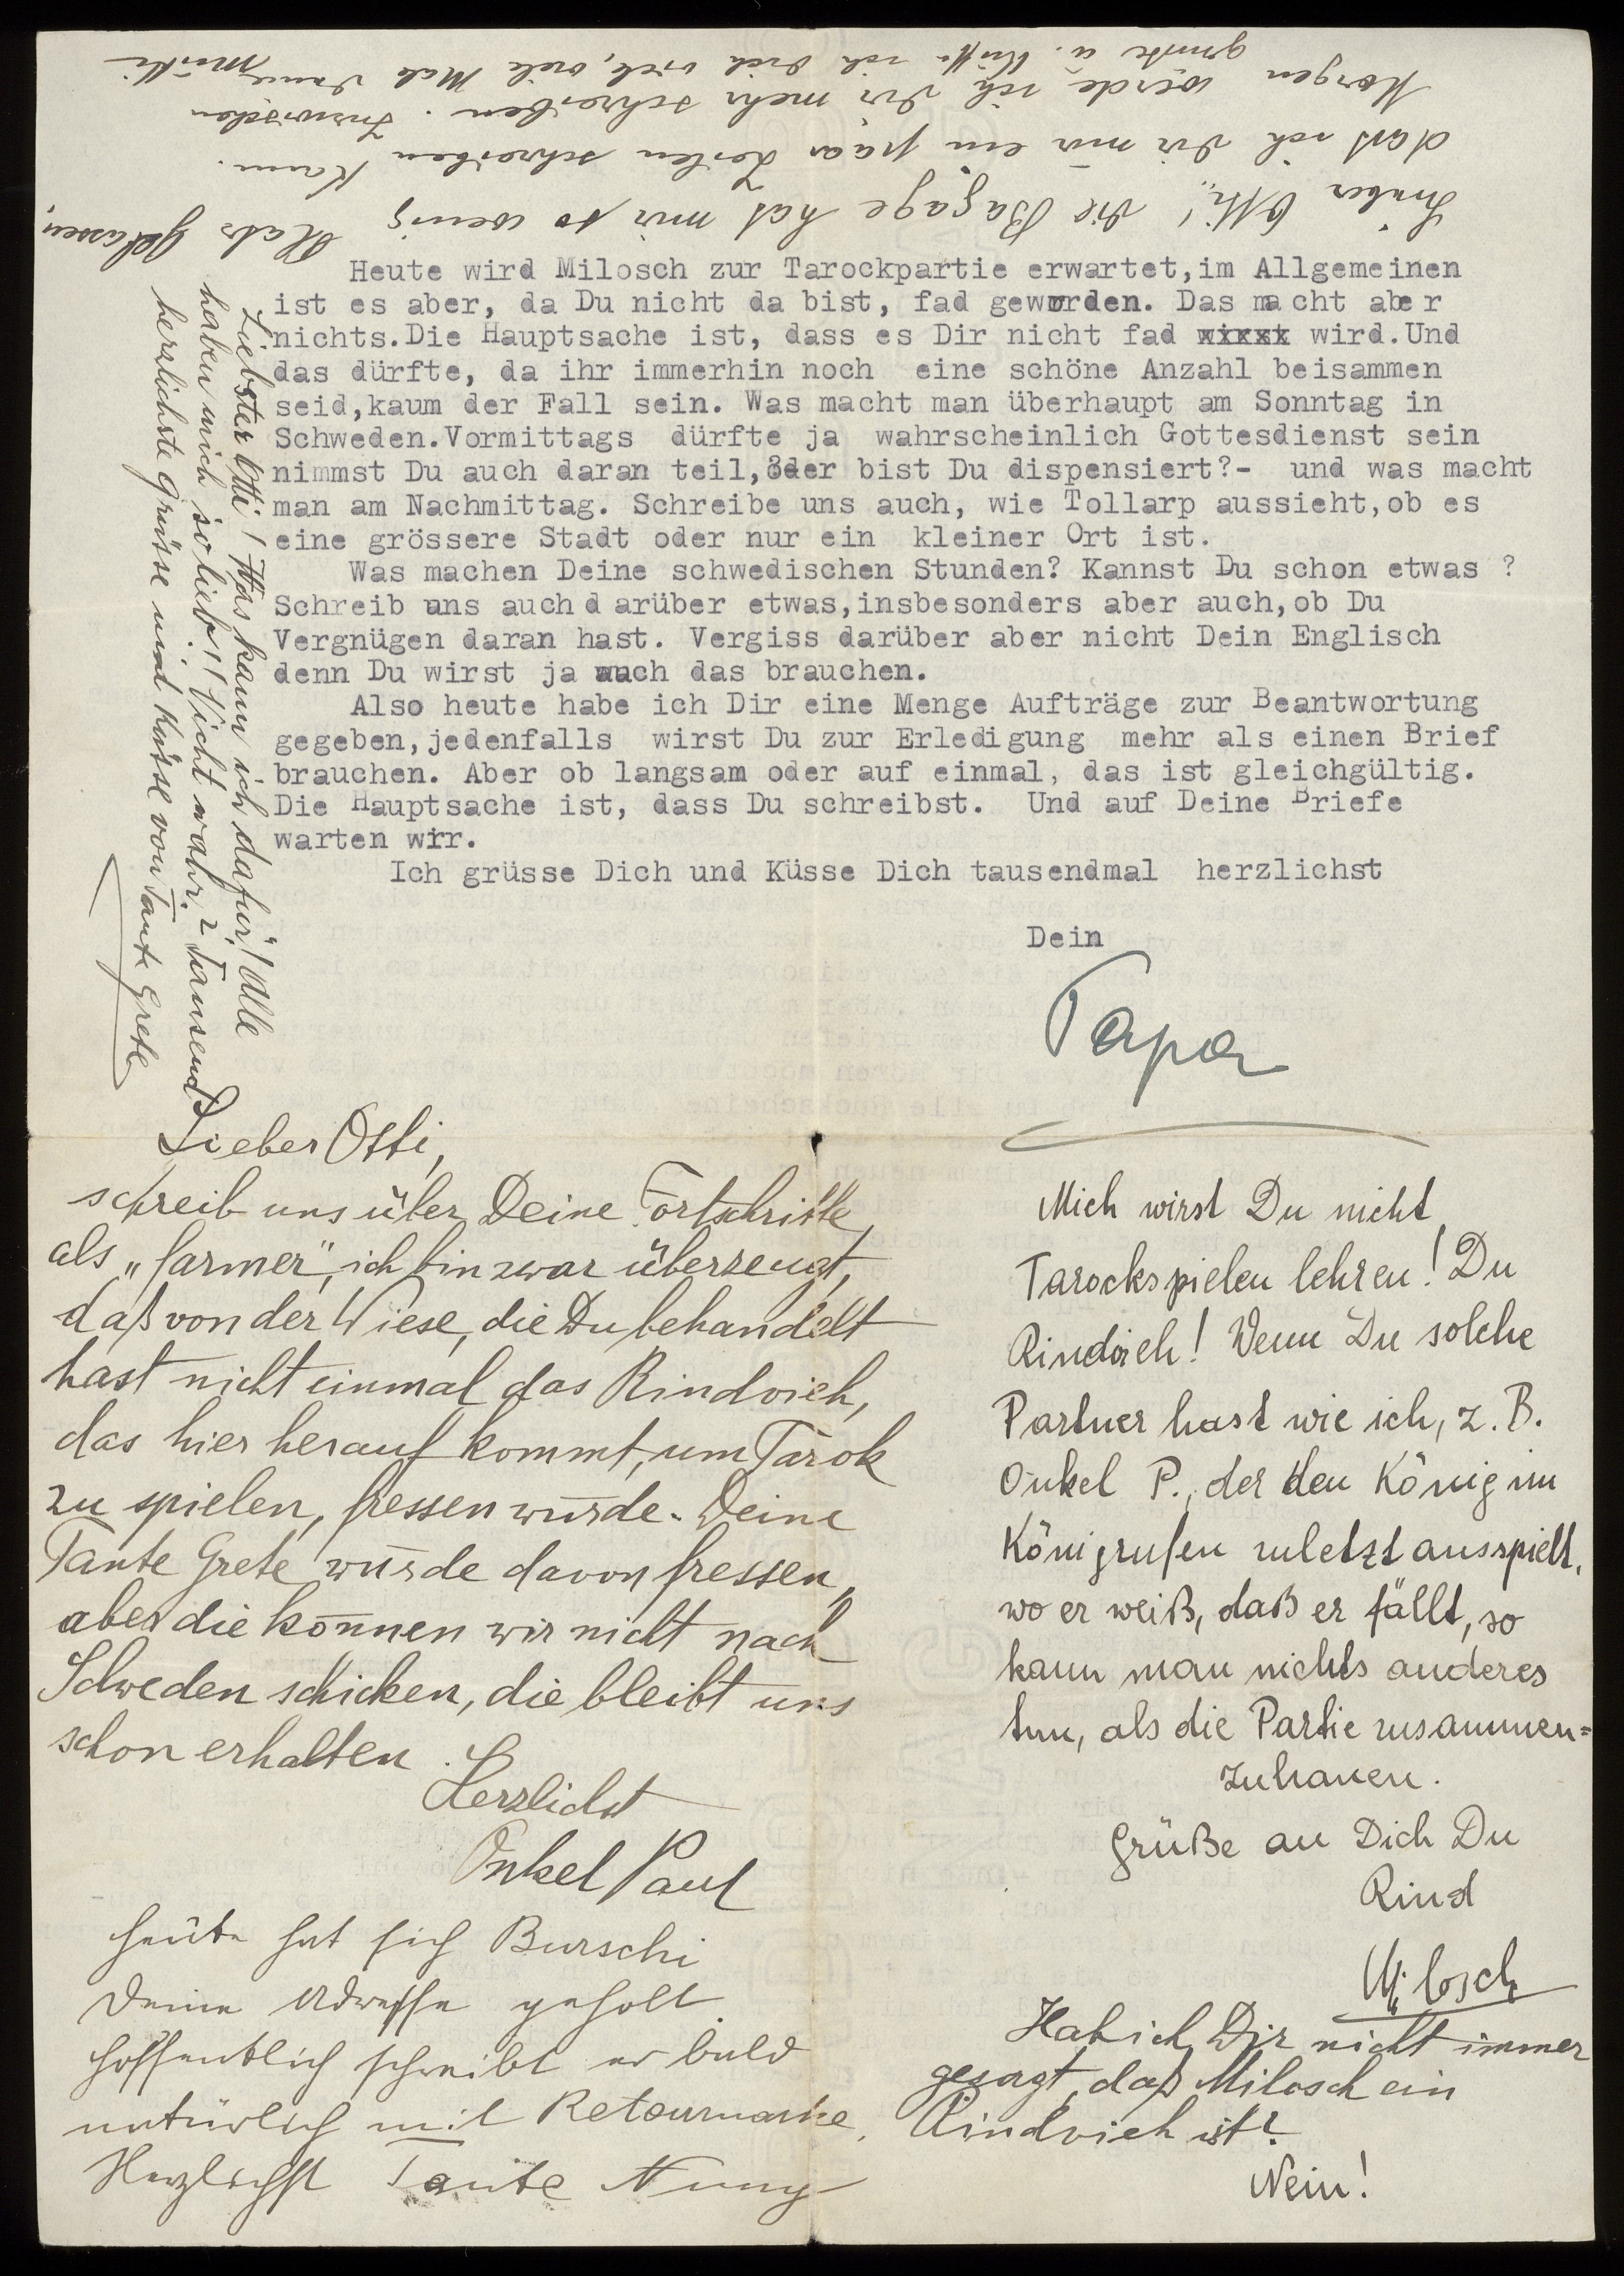 Lieber Otti! Die Bagage hat mir so wenig Platz gelassen,
dass ich Dir nur ein paar Zeilen schreiben kann.
Morgen werde ich Dir mehr schreiben. Inzwischen
grüsst u. küsst ich Dich viel, viel Mal Deine Mutti
Heute wird Milosch zur Tarockpartie erwartet,im Allgemeinen
ist es aber, da Du nicht da bist, fad geworden. Das macht aber
nichts.Die Hauptsache ist, dass es Dir nicht fad wirst wird.Und
das dürfte, da ihr immerhin noch eine schöne Anzahl beisammen
seid,kaum der Fall sein. Was macht man überhaupt am Sonntag in
Schweden.Vormittags dürfte ja wahrscheinlich Gottesdienst sein
nimmst Du auch daran teil,oder bist Du dispensiert?- und was macht
man am Nachmittag. Schreibe uns auch, wie Tollarp aussieht,ob es
eine grössere Stadt oder nur ein kleiner Ort ist.
Was machen Deine schwedischen Stunden? Kannst Du schon etwas ?
Schreib uns auch darüber etwas,insbesonders aber auch,ob Du
Vergnügen daran hast. Vergiss darüber aber nicht Dein Englisch
denn Du wirst ja auch das brauchen.
Also heute habe ich Dir eine Menge Aufträge zur Beantwortung
gegeben,jedenfalls wirst Du zur Erledigung mehr als einen Brief
brauchen. Aber ob langsam oder auf einmal, das ist gleichgültig.
Die Hauptsache ist, dass Du schreibst. Und auf Deine Briefe
warten wir.
Ich grüsse Dich und Küsse Dich tausendmal herzlichst
Dein
Papa
Liebster Otti! Was kann ich dafür! Alle
haben mich so lieb!! Nicht wahr? Tausend
herzlichste Grüsse und Küsse von Tante Grete
Lieber Otti,
schreib uns über Deine Fortschritte
als „farmer", ich bin zwar überzeugt,
daß von der Wiese, die Du behandelt
hast nicht einmal das Rindvieh,
das hier herauf kommt, um Tarok
zu spielen, fressen würde. Deine
Tante Grete würde davon fressen,
aber die können wir nicht nach
Schweden schicken, die bleibt uns
schon erhalten.
Herzlichst
Onkel Paul
Heute hat sich Burschi
Deine Adresse geholt
hoffentlich schreibt er bald
natürlich mit Retourmarke.
Herzlichst Tante Nuny
Mich wirst Du nicht
Tarockspielen lehren! Du
Rindvieh! Wenn Du solche
Partner hast wie ich, z. B.
Onkel P., der den König im
Königrufen zuletzt ausspielt,
wo er weiß, daß er fällt, so
kann man nichts anderes
tun, als die Partie zusammen=
zuhauen.
Grüße an Dich Du
Rind
Milosch
Hab ich Dir nicht immer
gesagt, daß Milosch ein
Rindvieh ist?
Nein!